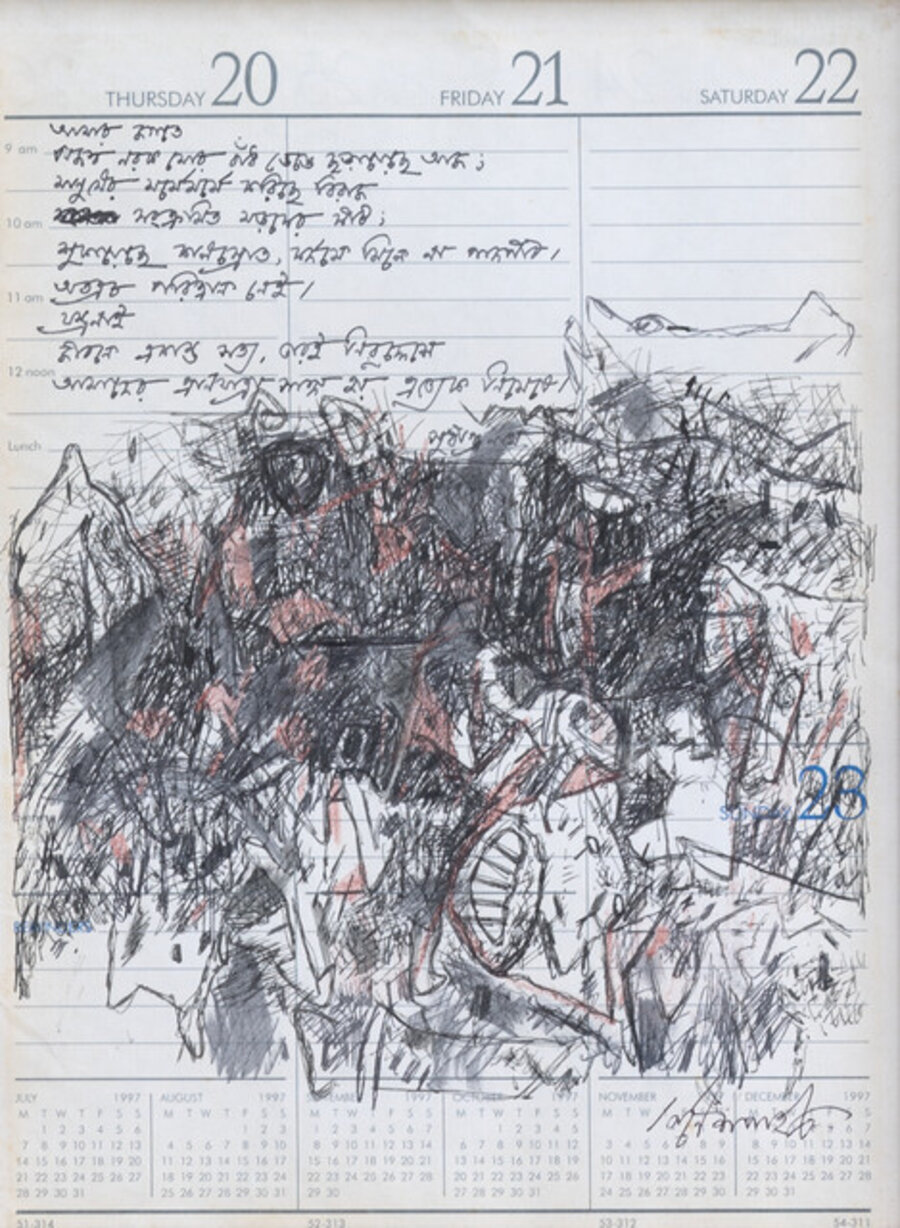 THURSDAY 20
FRIDAY 21
SATURDAY 22
আমার
9 am
নরক মোর ভেঙে ছড়ায়েছে আজ ;
মানুষের মর্মে মর্মে করিছে বিরাজ
10 am
সংক্রামিত মড়কের কীট ;
শুকায়েছে কালস্রোত, কর্দমে মিলে না পাদপীঠ।
11 am
অতএব পরিত্রাণ নেই।
যন্ত্রণাই
জীবনে একান্ত সত্য, তারই নিরুদ্দেশে
12 noon
আমাদের প্রাণযাত্রা সাঙ্গ হয় প্রত্যেক নিমেষে।
Lunch
SUNDAY 23
JULY 1997
M T W T F S S
1 2 3 4 5 6
7 8 9 10 11 12 13
14 15 16 17 18 19 20
21 22 23 24 25 26 27
28 29 30 31
AUGUST 1997
M T W T F S S
1 2 3
4 5 6 7 8 9 10
11 12 13 14 15 16 17
18 19 20 21 22 23 24
25 26 27 28 29 30 31
SEPTEMBER 1997
M T W T F S S
1 2 3 4 5 6 7
8 9 10 11 12 13 14
15 16 17 18 19 20 21
22 23 24 25 26 27 28
29 30
OCTOBER 1997
M T W T F S S
1 2 3 4 5
6 7 8 9 10 11 12
13 14 15 16 17 18 19
20 21 22 23 24 25 26
27 28 29 30 31
NOVEMBER
M T W
3 4 5 6 7 8 9
10 11 12 13 14 15 16
17 18 19 20 21 22 23
24 25 26 27 28 29 30
DECEMBER 1997
M T W T F S S
6 7
8 9 10 11 12 13 14
15 16 17 18 19 20 21
22 23 24 25 26 27 28
29 30 31
51-314
52-313
53-312
54-311